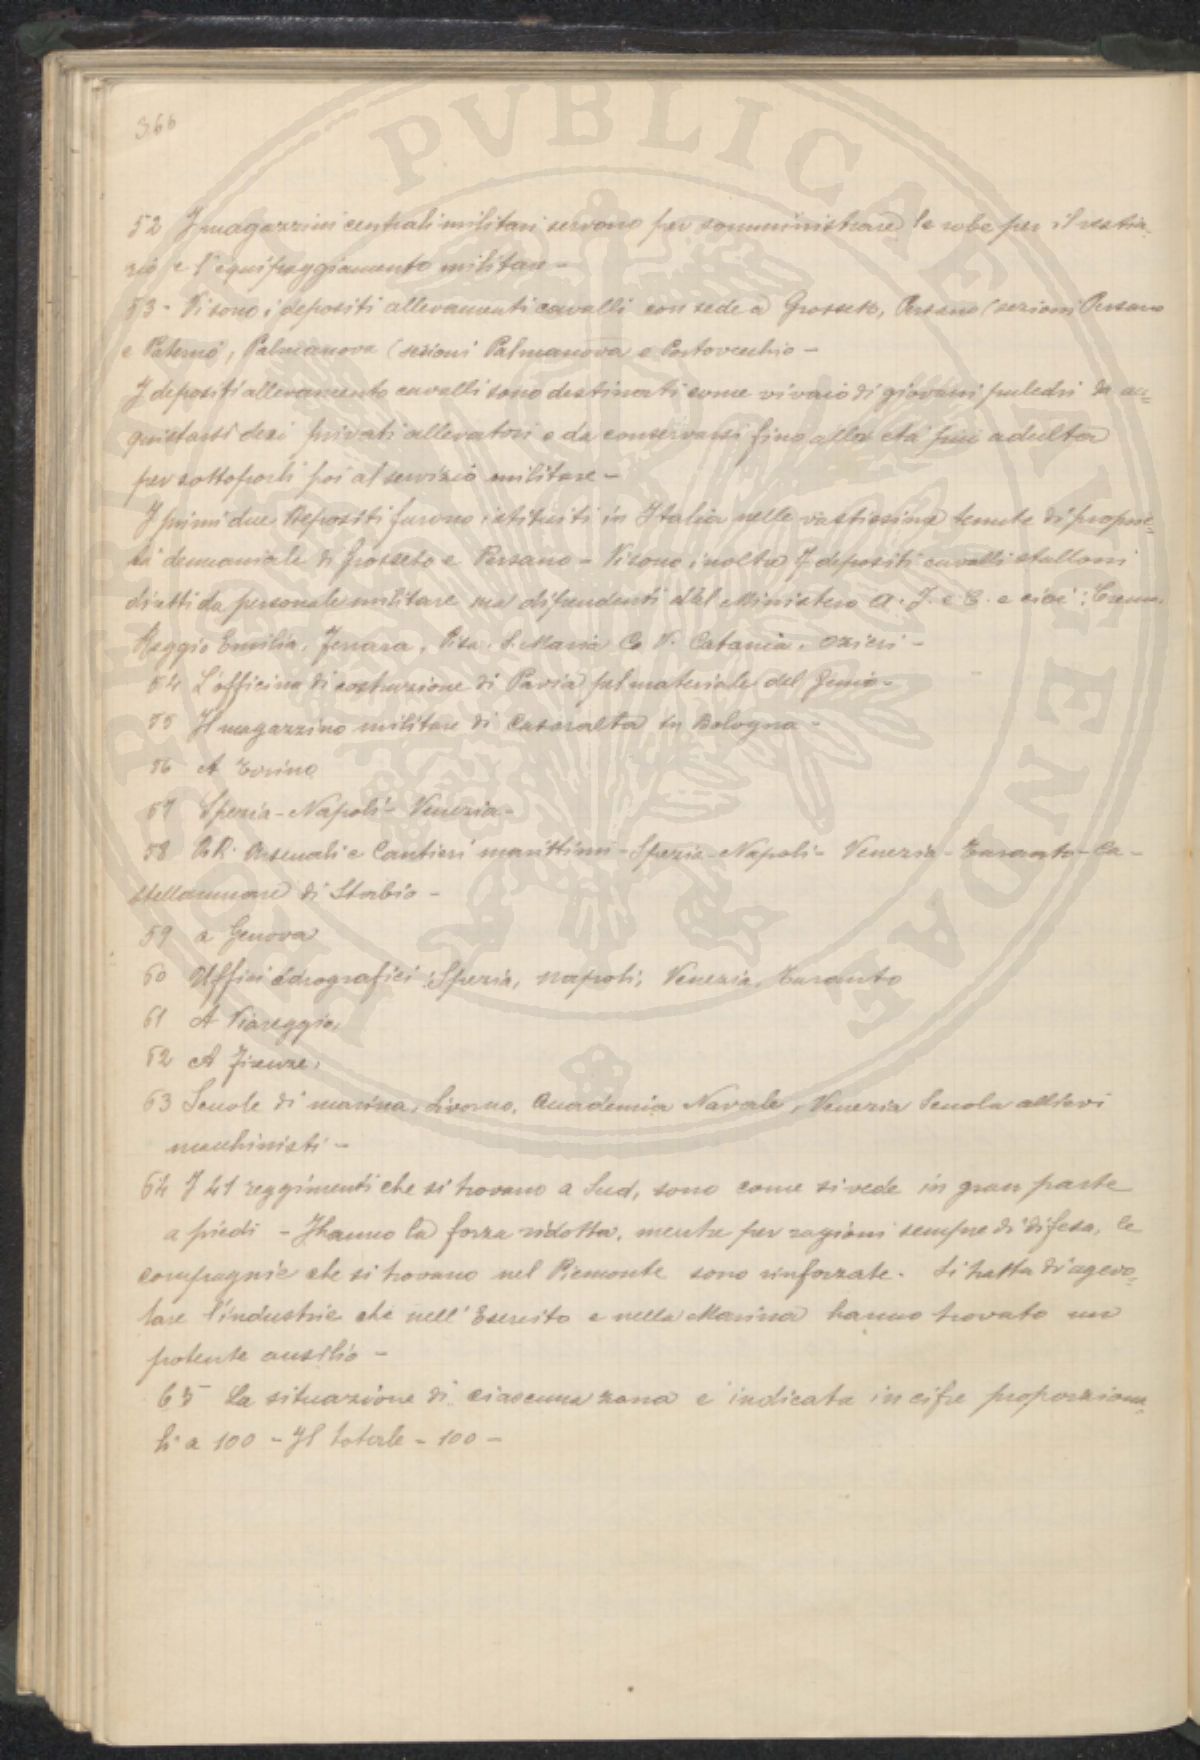 366
52 I magazzini centrali militari servono per somministrare le robe per il vestia-
rio e l'equipaggiamento militare -
53 - Vi sono i depositi allevamenti cavalli con sede a Grosseto, Persano (sezioni Persano
e Paternò, Palmanova (sezioni Palmanova e Portovecchio -
I depositi allevamento cavalli sono destinati come vivaio di giovani puledri da ac=
quistarsi dai privati allevatori e da conservarsi fino alla età più adulta
per sottoporli poi al servizio militare -
I primi due Depositi furono istituiti in Italia nelle vastissime tenute di proprie=
tà demaniale di Grosseto e Persano - Vi sono inoltre 7 depositi cavalli stalloni
diretti da personale militare ma dipendenti dal Ministero A. I. e C. e cioè: Crema,
Reggio Emilia, Ferrara, Pisa, S. Maria C. V. Catania, Ozieri -
54 L'officina di costruzione di Pavia pel materiale del Genio -
55 Il magazzino militare di Casaralta in Bologna -
56 A Torino
57 Spezia - Napoli - Venezia -
58 RR. Arsenali e Cantieri marittimi - Spezia - Napoli - Venezia - Taranto - Ca-
stellammare di Stabia -
59 a Genova
60 Uffici idrografici: Spezia, Napoli, Venezia, Taranto
61 A Viareggio,
62 A Firenze,
63 Scuole di marina, Livorno, Accademia Navale, Venezia Scuola allievi
macchinisti -
64 I 41 reggimenti che si trovano a Sud, sono come si vede in gran parte
a piedi - Hanno la forza ridotta, mentre per ragioni sempre di difesa, le
compagnie che si trovano nel Piemonte sono rinforzate. Si tratta di agevo=
lare l'industrie che nell'Esercito e nella Marina hanno trovato un
potente ausilio -
65 La situazione di ciascuna zona è indicata in cifre proporziona=
li a 100 - Il totale - 100 -
PVBLICAE REGENDAE